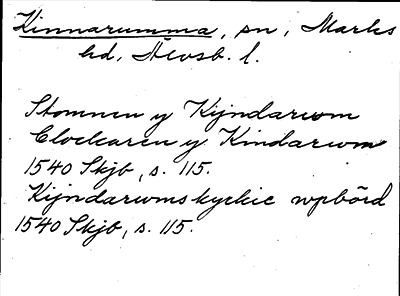 Kinnarumma, sn, Marks
hd, Älvsb. l.
Stomnen y Kijndarwm
Clockaren y Kindarwm
1540 Skjb, s. 115.
Kijndarwms kyrkie wpbörd
1540 Skjb, s. 115.